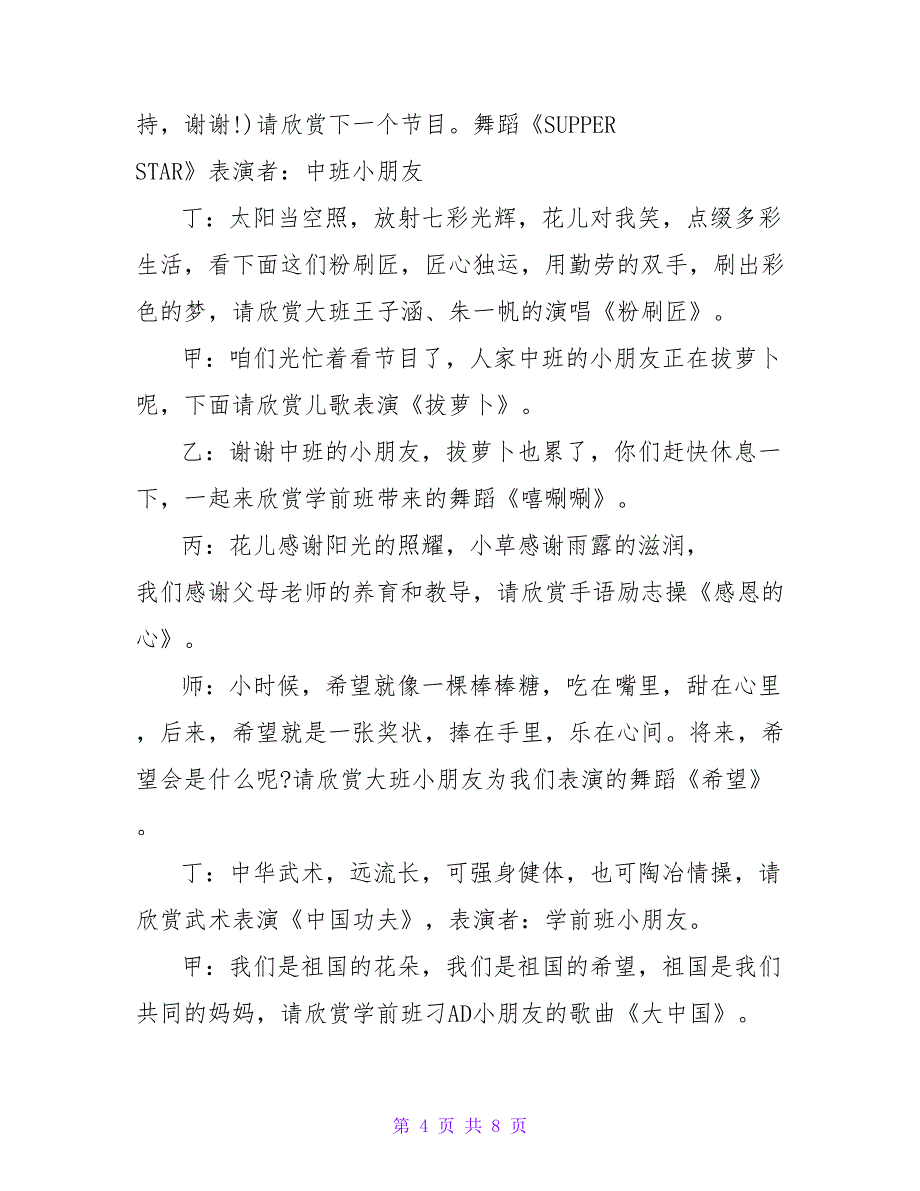 持，谢谢!)请欣赏下一个节目。舞蹈《SUPPER
STAR》表演者：中班小朋友
丁：太阳当空照，放射七彩光辉，花儿对我笑，点缀多彩
生活，看下面这们粉刷匠，匠心独运，用勤劳的双手，刷出彩
色的梦，请欣赏大班王子涵、朱一帆的演唱《粉刷匠》。
甲：咱们光忙着看节目了，人家中班的小朋友正在拔萝卜
呢，下面请欣赏儿歌表演《拔萝卜》。
乙：谢谢中班的小朋友，拔萝卜也累了，你们赶快休息一
下，一起来欣赏学前班带来的舞蹈《嘻唰唰》。
丙：花儿感谢阳光的照耀，小草感谢雨露的滋润，
我们感谢父母老师的养育和教导，请欣赏手语励志操《感恩的
心》。
师：小时候，希望就像一棵棒棒糖，吃在嘴里，甜在心里
，后来，希望就是一张奖状，捧在手里，乐在心间。将来，希
望会是什么呢?请欣赏大班小朋友为我们表演的舞蹈《希望》
。
丁：中华武术，远流长，可强身健体，也可陶冶情操，请
欣赏武术表演《中国功夫》，表演者：学前班小朋友。
甲：我们是祖国的花朵，我们是祖国的希望，祖国是我们
共同的妈妈，请欣赏学前班刁AD小朋友的歌曲《大中国》。
第 4 页 共 8 页